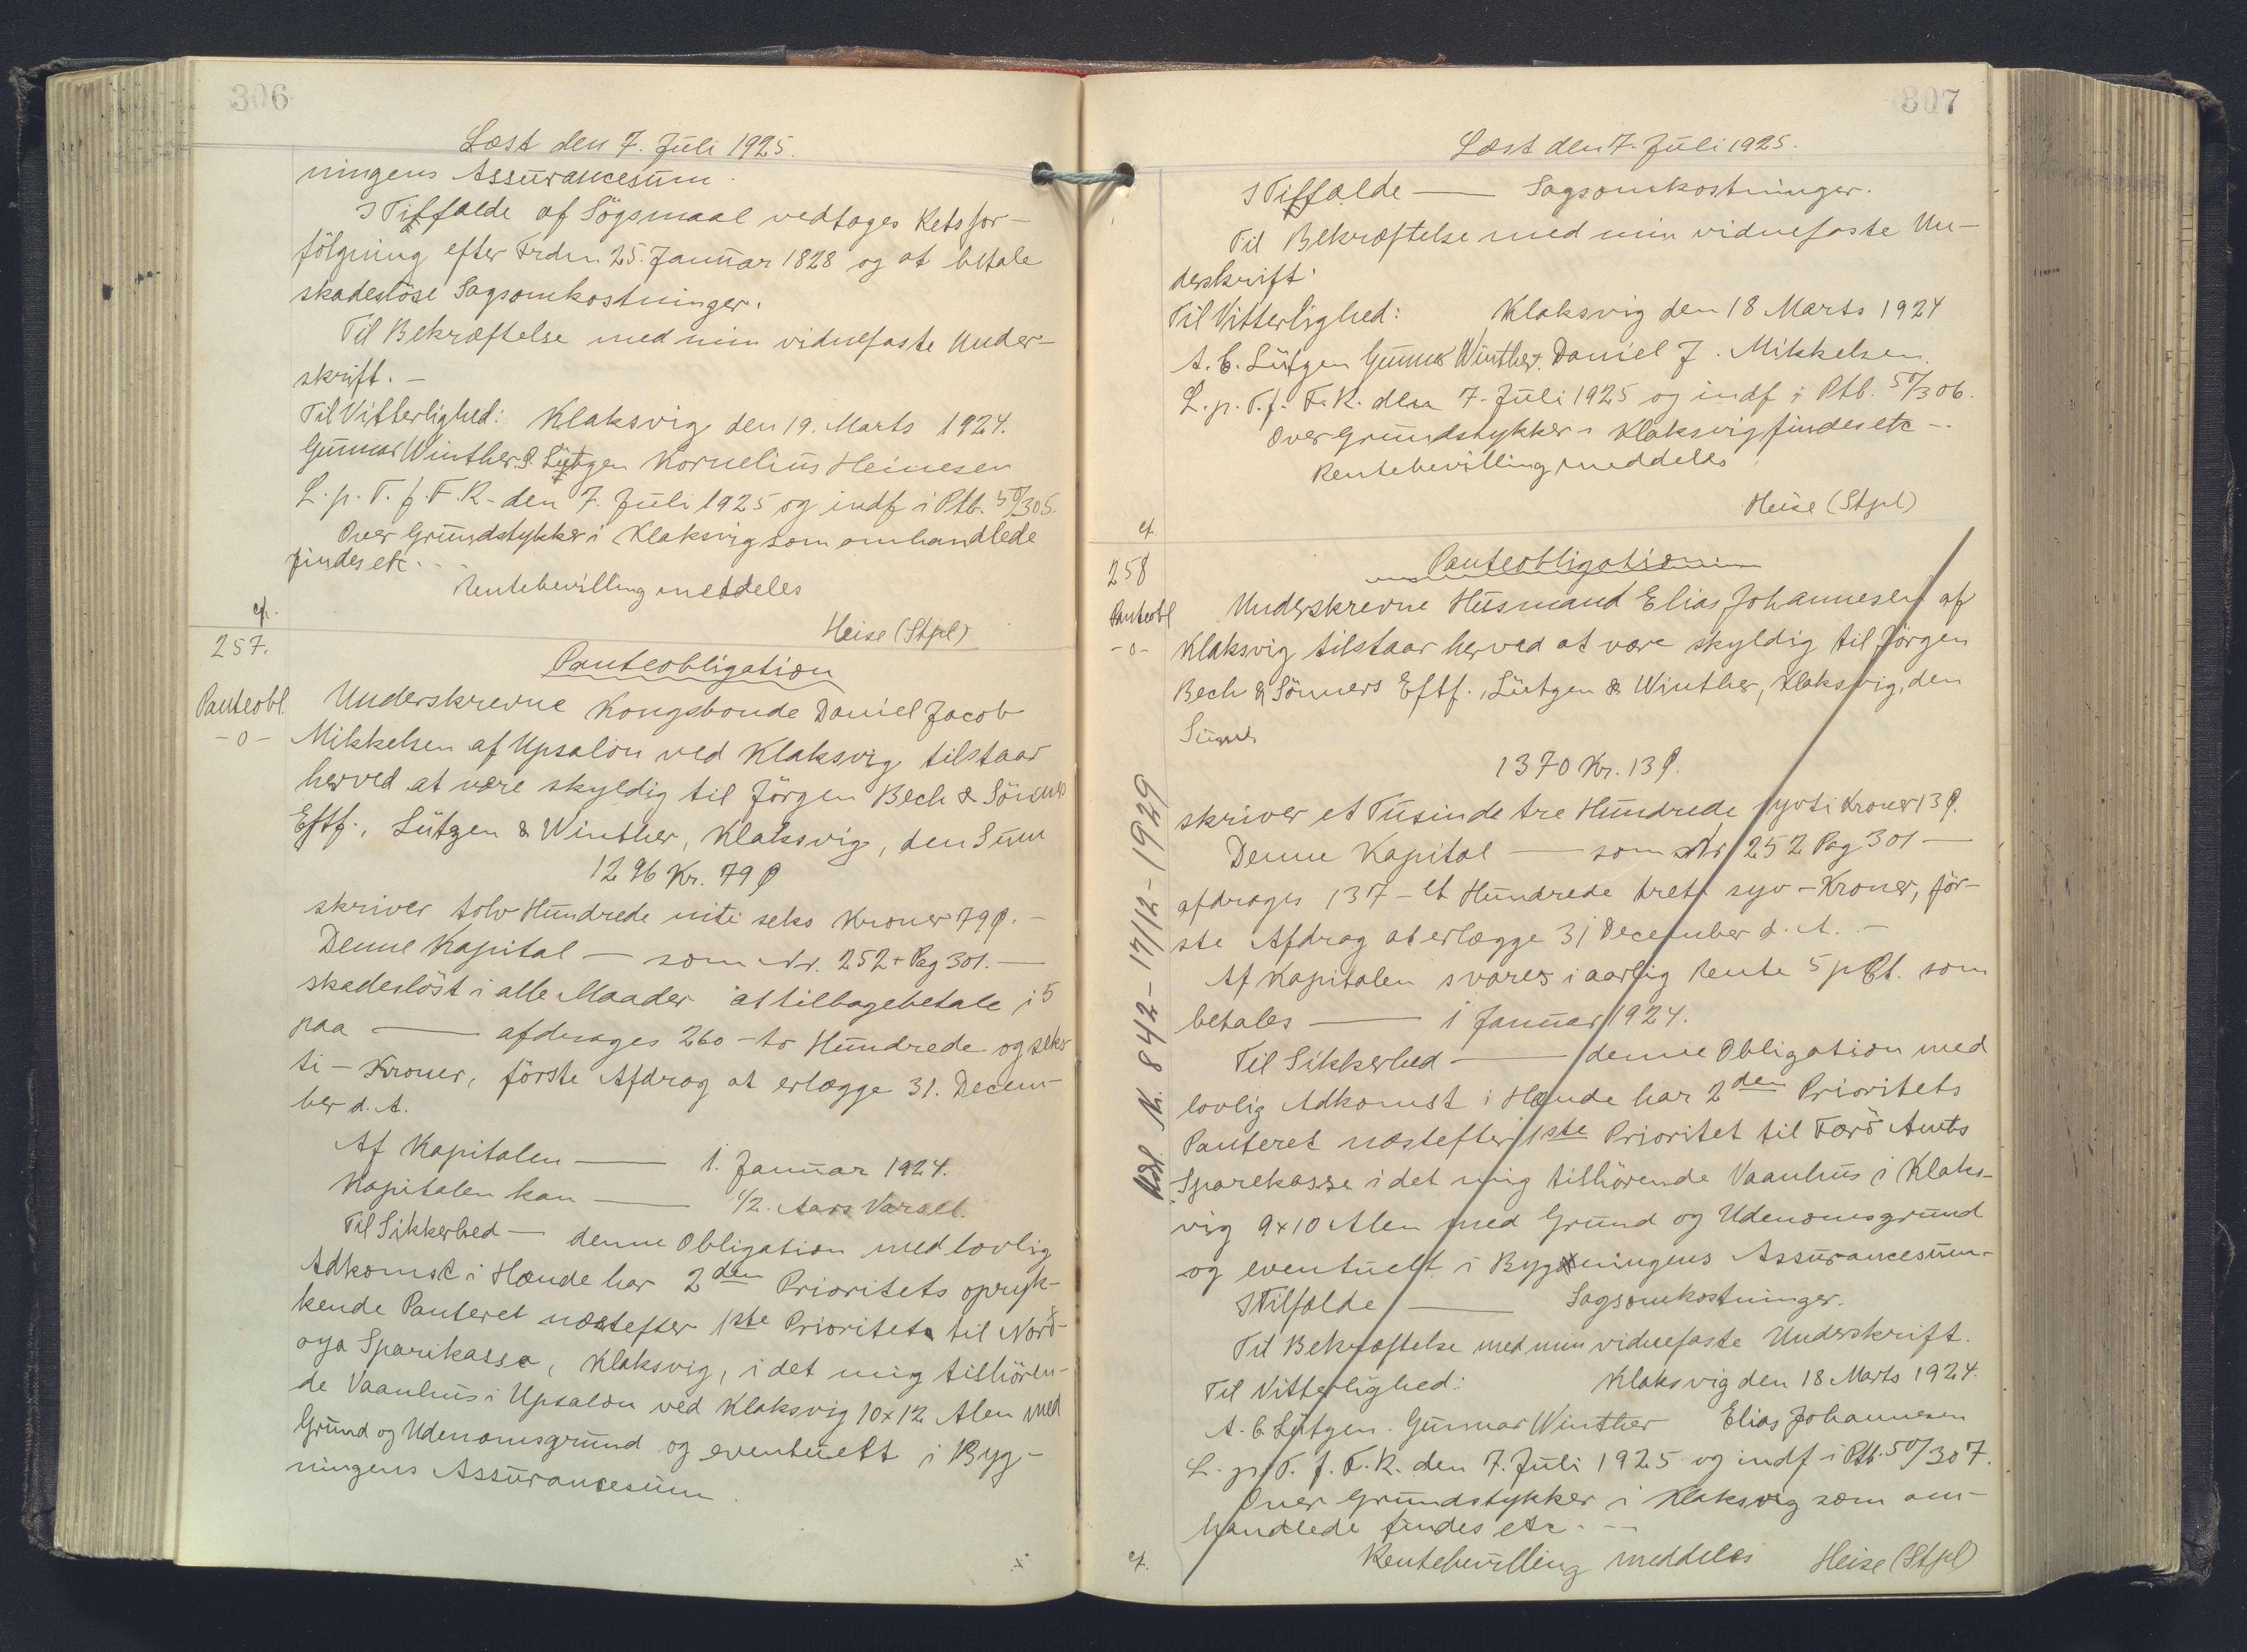 306
Læst den 7. Juli 1925.
ningens Assurancesum.
I Tilfælde af Sögsmaal vedtages Retsfor-
fölgning efter Frdn. 25. Januar 1828 og at betale
skadeslöse Sagsomkostninger.
Til Bekræftelse med min vidnefaste Under-
skrift. -
Til Vitterlighed: Klaksvig den 19. Marts 1924.
Gunnar Winther. P. Lützen Kornelius Heinesen
L. p. T. f. F. R. den 7. Juli 1925 og indf i Ptb. 5 0/305.
Over Grundstykker i Klaksvig som omhandlede
findes etc. - -
Rentebevilling meddeles
Heise (Stpl)
cf.
257.
Panteobl
- o -
Panteobligation
Underskrevne Kongsbonde Daniel Jacob
Mikkelsen af Upsalon ved Klaksvig tilstaar
herved at være skyldig til Jörgen Bech & Sönners
Eftf., Lützen & Winther, Klaksvig, den Sum
1296 Kr. 79 Ø
skriver tolv Hundrede niti seks Kroner 79 Ø. -
Denne Kapital — som Nr. 252 + Pag 301. —
skadeslöst i alle Maader at tilbagebetale i 5
paa — afdrages 260 - to Hundrede og seks
ti - Kroner, förste Afdrag at erlægge 31. Decem-
ber d. A.
Af Kapitalen — 1. Januar 1924.
Kapitalen kan — 1/2. Aars Varsel.
Til Sikkerhed — denne Obligation med lovlig
Adkomst i Hænde har 2den Prioritets opryk-
kende Panteret næstefter 1ste Prioritet til Norð-
oya Sparikassa, Klaksvig, i det mig tilhören-
de Vaanhus i Upsalon ved Klaksvig 10 x 12 Alen med
Grund og Udenomsgrund og eventuelt i Byg-
ningens Assurancesum.
307
Læst den 7. Juli 1925.
I Tilfælde — Sagsomkostninger.
Til Bekræftelse med min vidnefaste Un-
derskrift.
Til Vitterlighed: Klaksvig den 18 Marts 1924
A. C. Lützen Gunnar Winther. Daniel J. Mikkelsen.
L. p. T. f. F. R. den 7. Juli 1925 og indf i Ptb. 5 0/306.
Over Grundstykker i Klaksvig findes etc - -
Rentebevilling meddeles
Heise (Stpl)
cf.
258
Panteobl
- o -
Panteobligation
Underskrevne Husmand Elias Johannesen af
Klaksvig tilstaar herved at være skyldig til Jörgen
Bech & Sönners Eftf., Lützen & Winther, Klaksvig, den
Sum
1370 Kr. 13 Ø.
skriver et Tusinde tre Hundrede syvti Kroner 13 Ø.
Denne Kapital — som Nr 252 Pag 301 —
afdrages 137 - et Hundrede treti syv - Kroner, för-
ste Afdrag at erlægge 31 December d. A. -
Af Kapitalen svares i aarlig Rente 5 pCt. som
betales — 1 Januar 1924.
Til Sikkerhed — denne Obligation med
lovlig Adkomst i Hænde har 2den Prioritets
Panteret næstefter 1ste Prioritet til Færö Amts
Sparekasse i det mig tilhörende Vaanhus i Klaks-
vig 9 x 10 Alen med Grund og Udenomsgrund
og eventuelt i Bygningens Assurancesum -
I Tilfælde — Sagsomkostninger.
Til Bekræftelse med min vidnefaste Underskrift.
Til Vitterlighed: Klaksvig den 18 Marts 1924.
A. C. Lützen. Gunnar Winther Elias Johannesen
L. p. T. f. F. R. den 7. Juli 1925 og indf i Ptb. 5 0/307.
Over Grundstykker i Klaksvig som om-
handlede findes etc. - -
Rentebevilling meddeles Heise (Stpl)
cf.
Adl. N. 842 - 17/12 - 1929